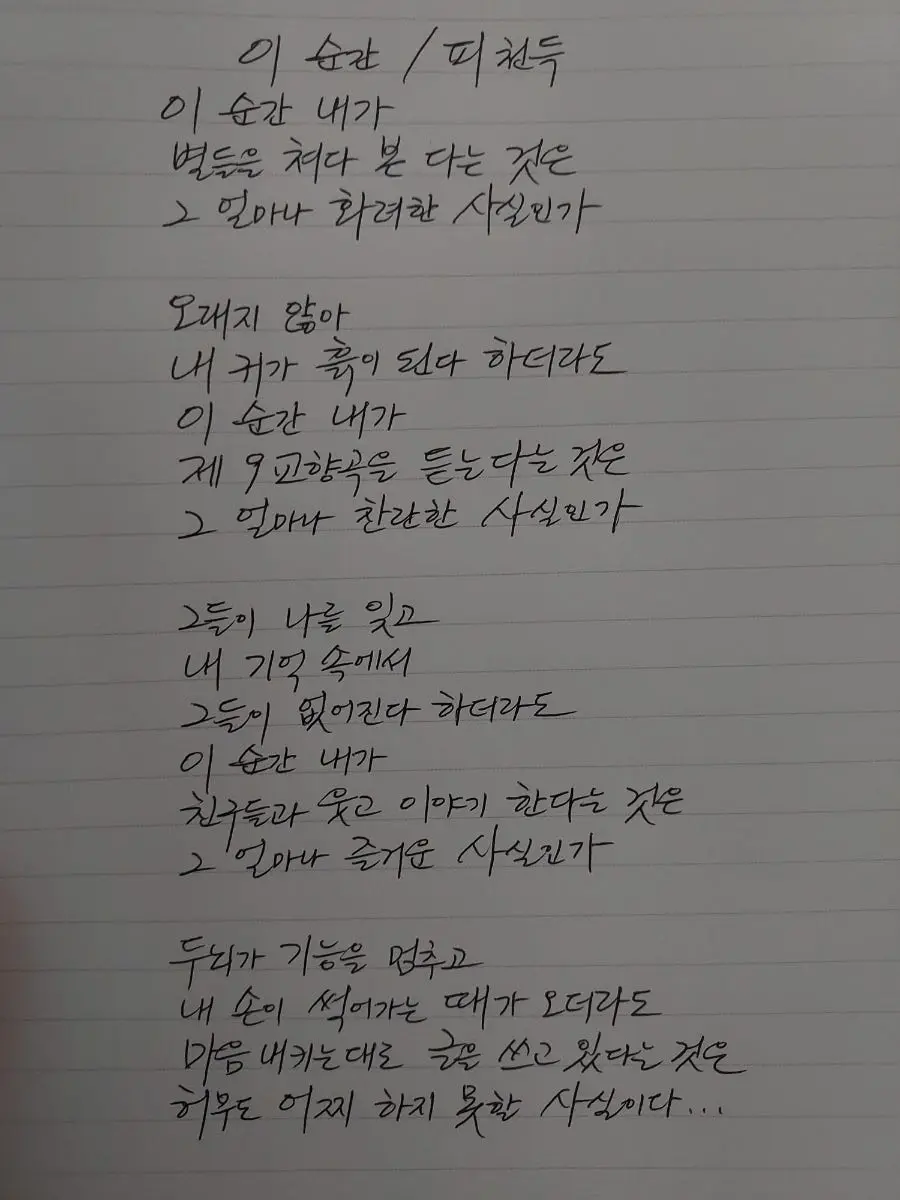 이 순간 / 피천득
이 순간 내가
별들을 쳐다 본 다는 것은
그 얼마나 화려한 사실인가
오래지 않아
내 귀가 흙이 된다 하더라도
이 순간 내가
제 9 교향곡을 듣는다는 것은
그 얼마나 찬란한 사실인가
그들이 나를 잊고
내 기억 속에서
그들이 없어진다 하더라도
이 순간 내가
친구들과 웃고 이야기 한다는 것은
그 얼마나 즐거운 사실인가
두뇌가 기능을 멈추고
내 손이 썩어가는 때가 오더라도
마음 내키는대로 글을 쓰고 있다는 것은
허무도 어찌 하지 못할 사실이다...